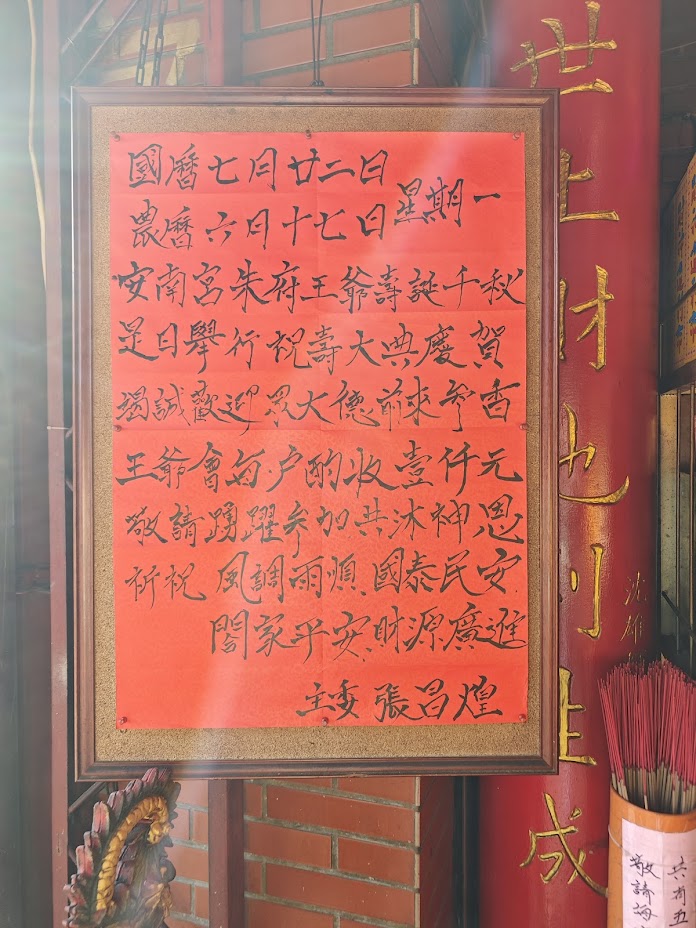 國曆七月廿二日
農曆六月十七日
星期一
安南宮朱府王爺壽誕千秋
是日舉行祝壽大典慶賀
竭誠歡迎眾大德前來參香
王爺會每戶酌收壹仟元
敬請踴躍參加共沐神恩
祈祝 風調雨順 國泰民安
閤家平安 財源廣進
主委 張昌煌
世上財也
生成
共有五
敬請